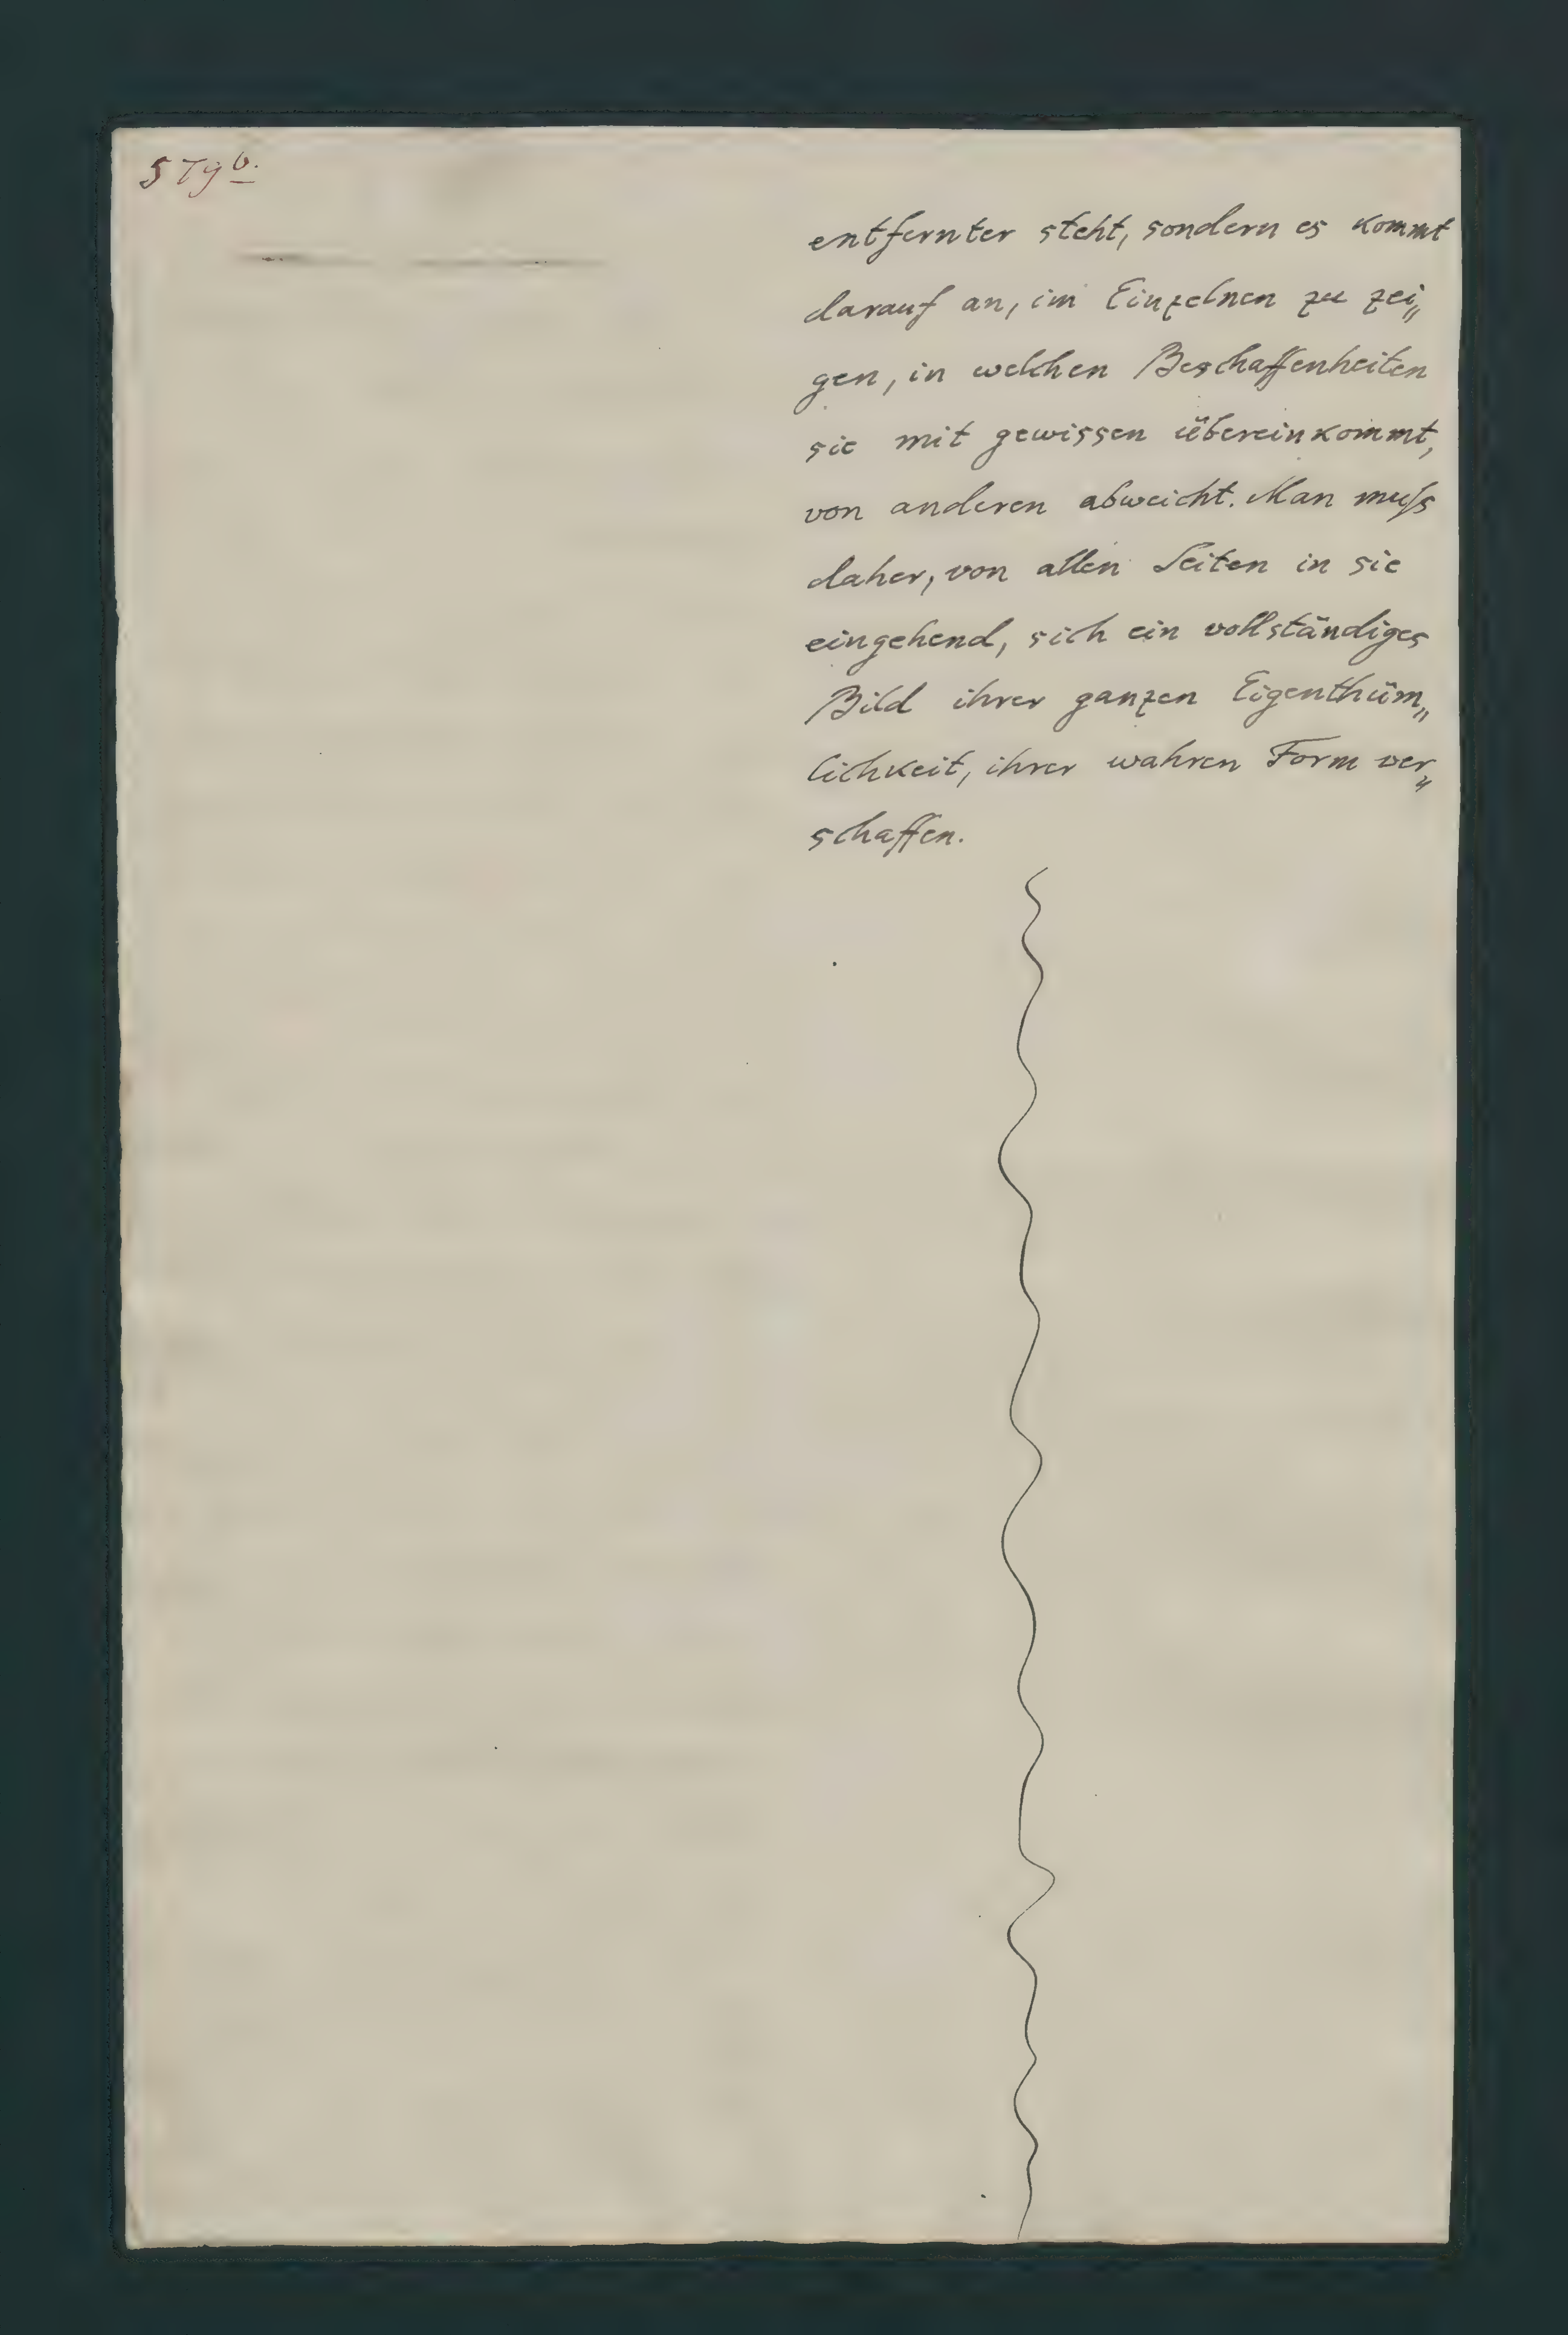 579b.
entfernter steht, sondern es kommt
darauf an, im Einzelnen zu zei„
gen, in welchen Beschaffenheiten
sie mit gewissen übereinkommt,
von anderen abweicht. Man muſs
daher, von allen Seiten in sie
eingehend, sich ein vollständiges
Bild ihrer ganzen Eigenthüm„
lichkeit, ihrer wahren Form ver„
schaffen.